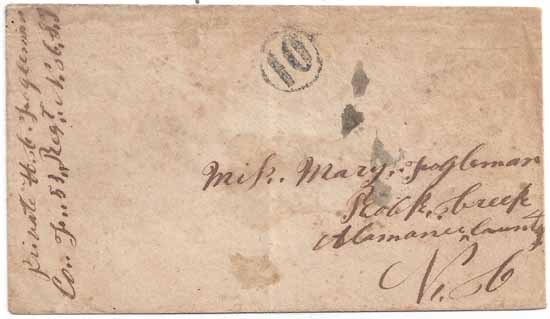 Private H. C. Fogleman
Co. F. 53, Regt. N. C.
10
Miss. Mary. Fogleman
Rock. Creek
Alamance, County
N. C